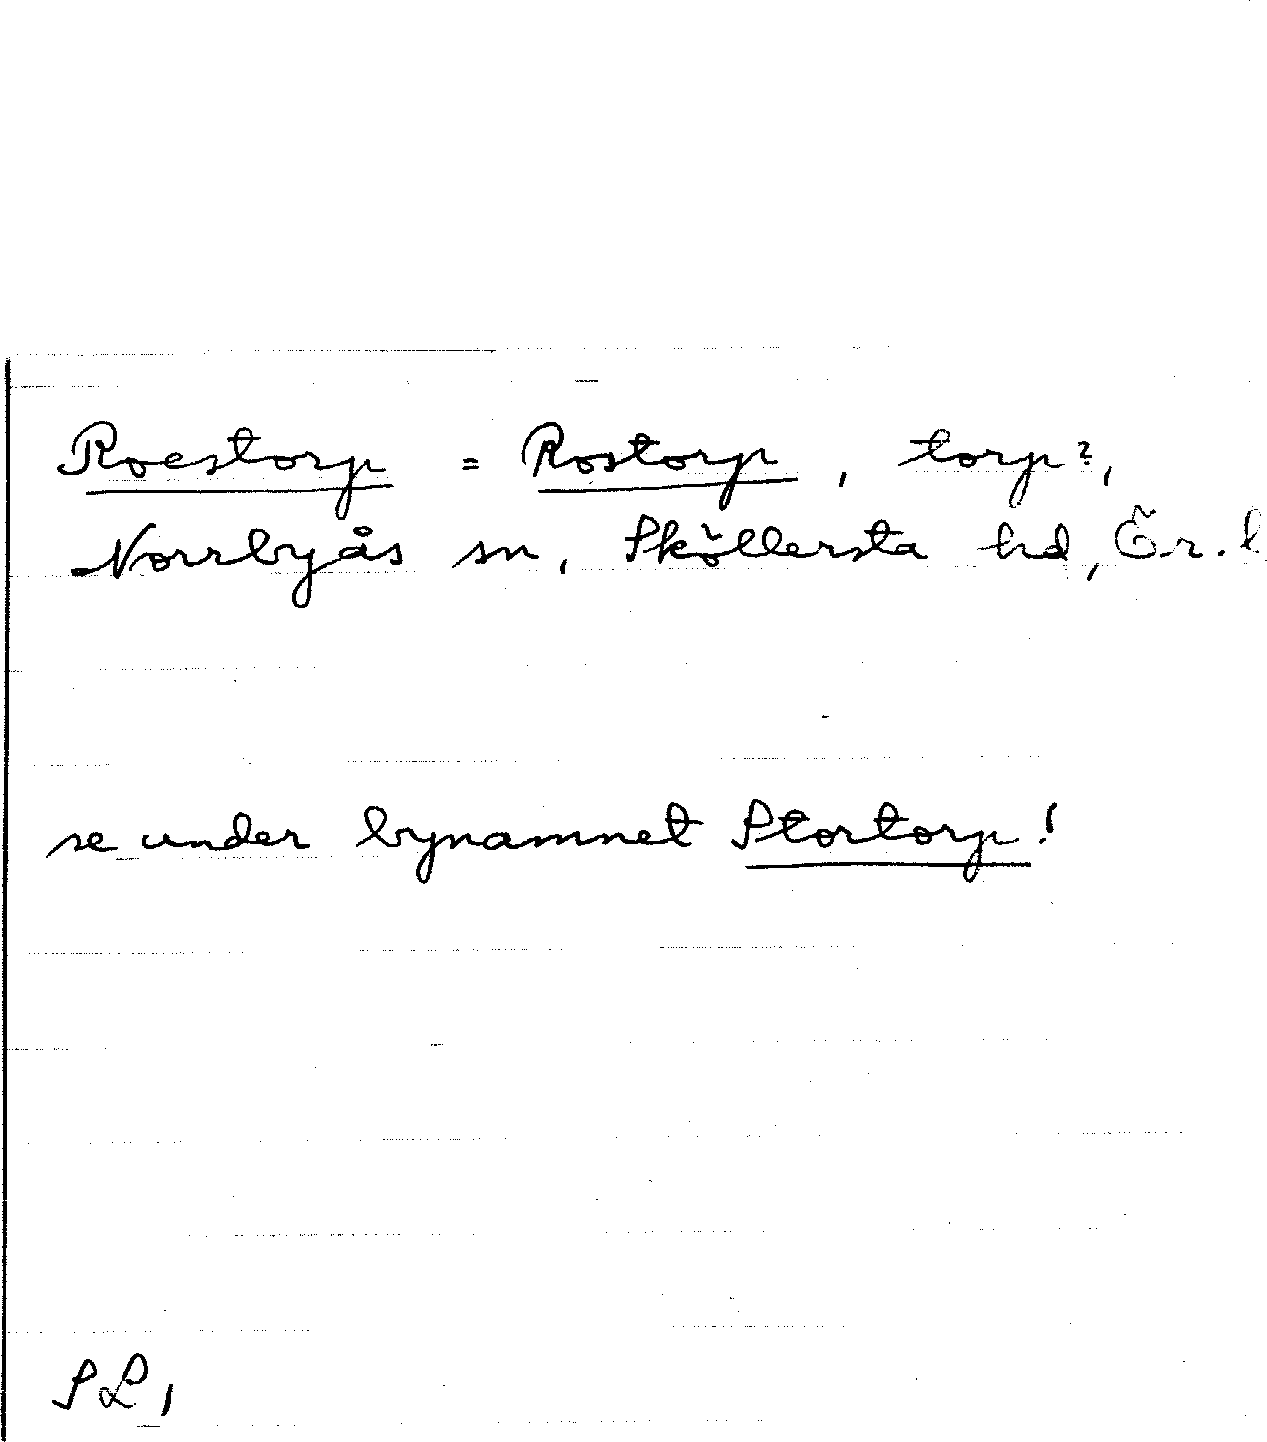 Roestorp = Rostorp, torp?,
Norrbyås sn, Sköllersta hd, Ör. l
se under bynamnet Stortorp!
SL,